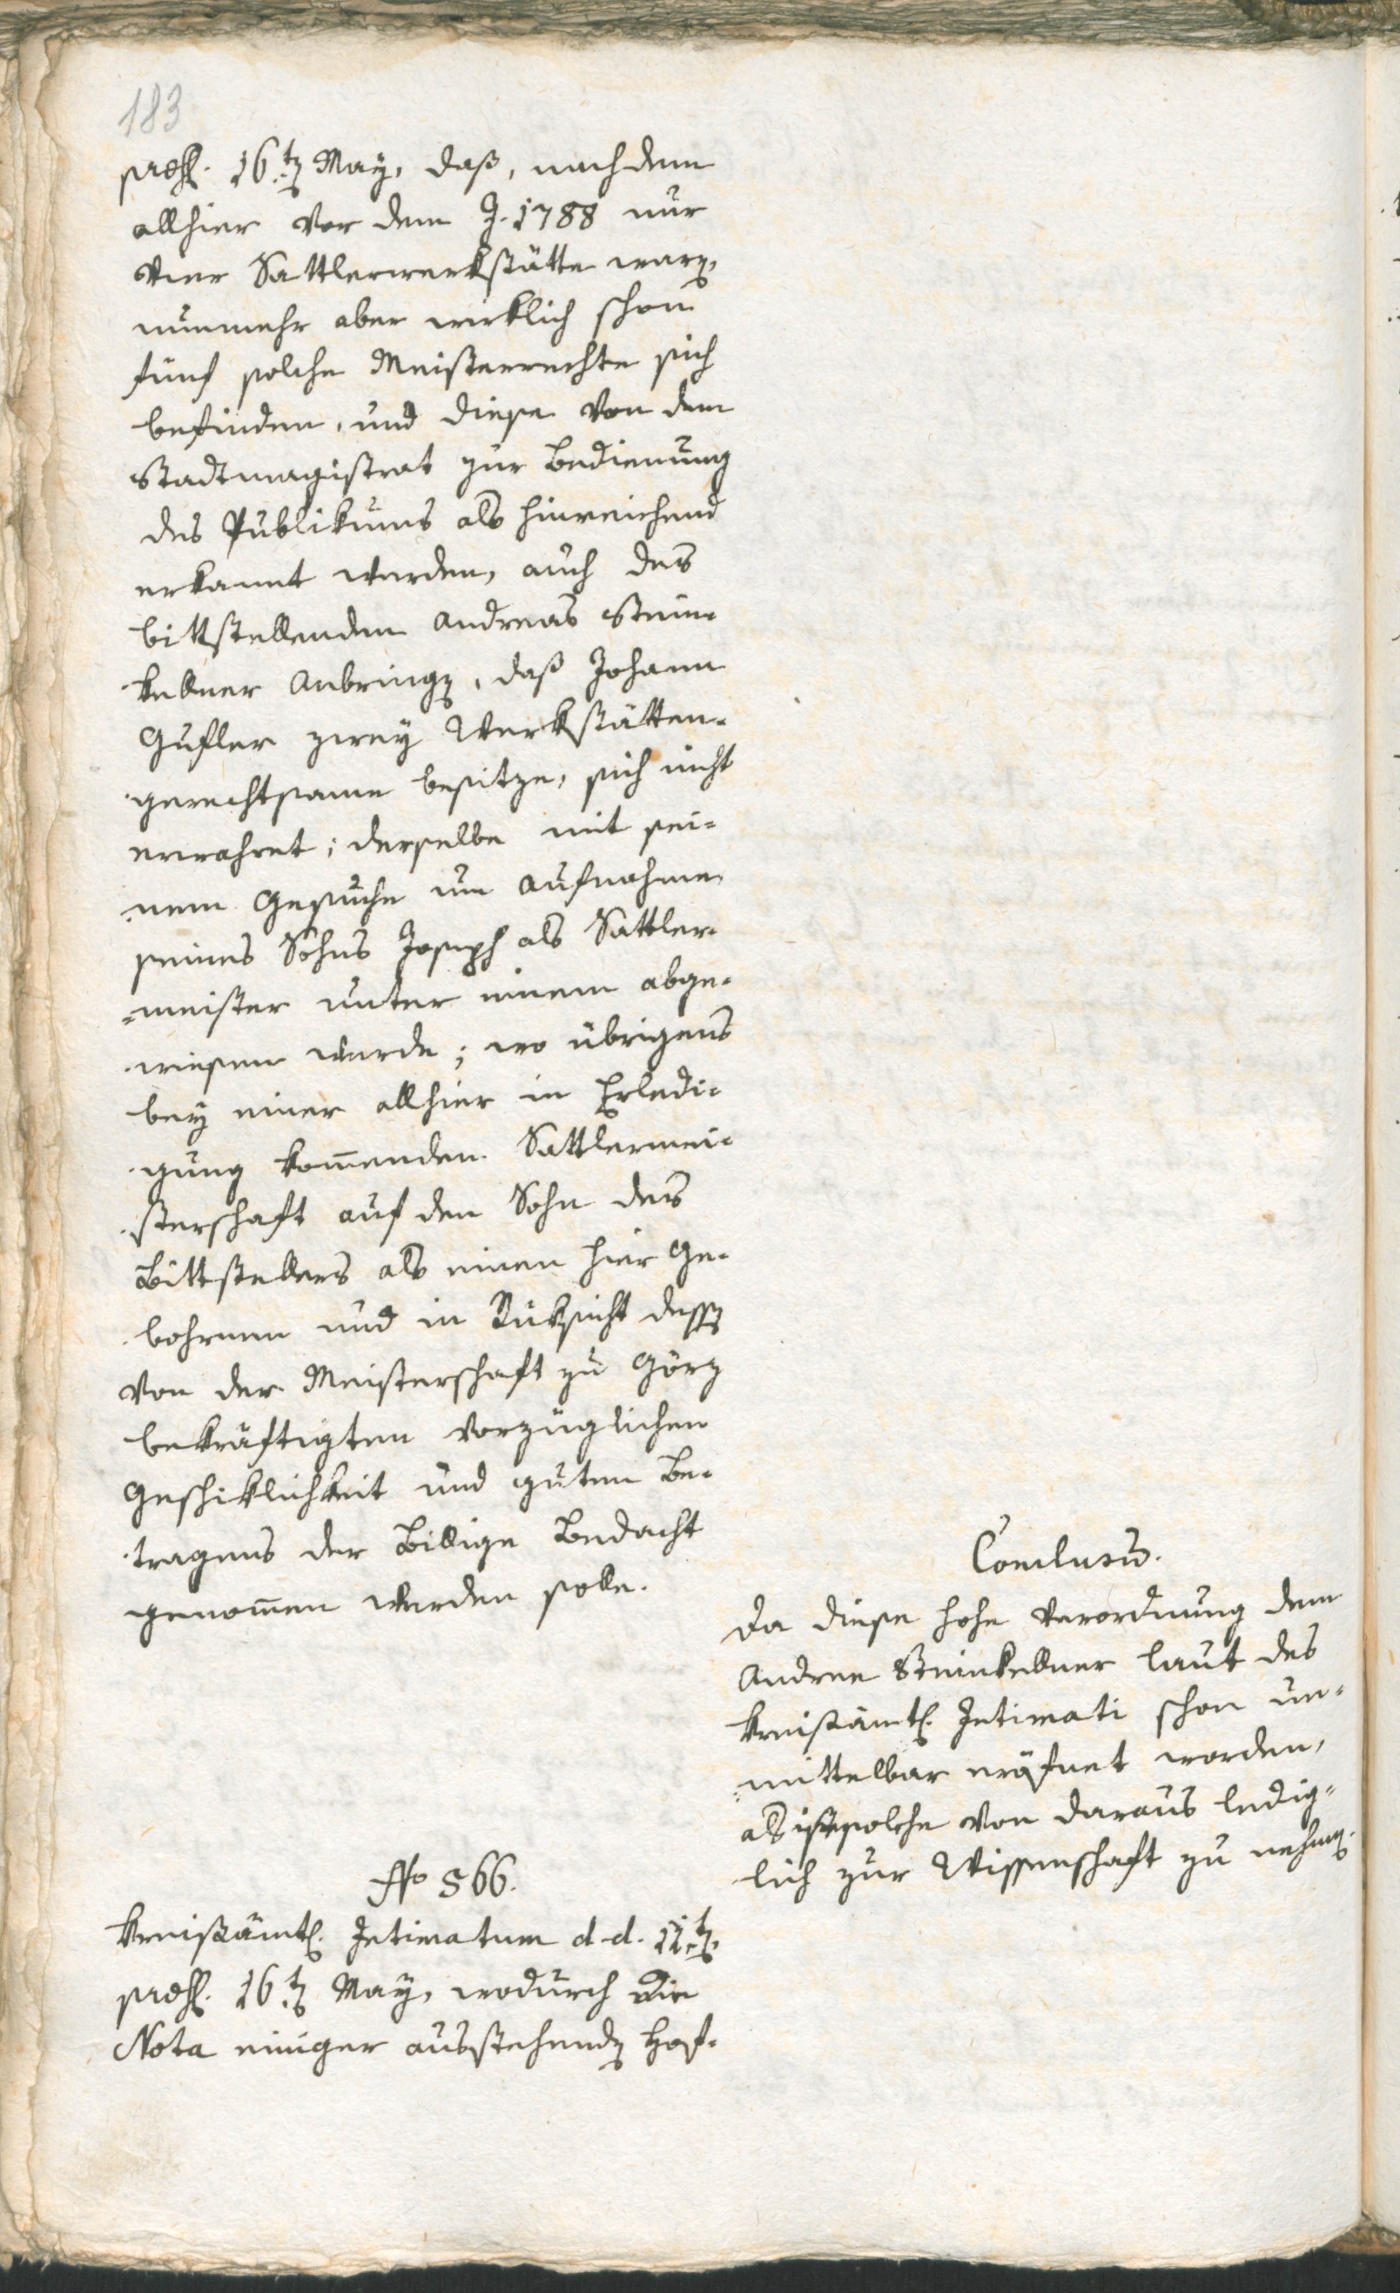 183
præs. 16.ten May, daß, nachdem
allhier vor dem J. 1788 nur
vier Sattlerwerkstätte waren,
nunmehr aber wirklich schon
fünf solche Meisterrechte sich
befinden, und diese von dem
Stadtmagistrat zur Bedienung
des Publikums als hinreichend
erkannt werden, auch des
bittstellenden Andreas Stein-
kellner Anbringen, daß Johann
Gufler zwey Werkstätten-
gerechtsame besitze, sich nicht
erwahret; derselbe mit sei=
nem Gesuche um Aufnahme
seines Sohns Joseph als Sattler-
=meister unter einem abge-
wiesen werde; wo übrigens
bey einer allhier in Erledi-
gung kom̅enden Sattlermei-
sterschaft auf den Sohn des
Bittstellers als einen hier Ge-
bohrnen und in Rüksicht dessen
von der Meisterschaft zu Görz
bekräftigten vorzüglichen
Geschiklichkeit und guten Be-
tragens der Billige Bedacht
genom̅en werden solle.
Conclusum.
Da diese hohe Verordnung dem
Andree Steinkellner laut des
kreisämtl. Intimati schon un-
mittelbar eröfnet worden,
als ist solche von daraus ledig-
lich zur Wissenschaft zu nehmen.
No 566.
Kreisämtl. Intimatum d. d. 11.ten,
præs. 16.ten May, wodurch die
Nota einiger ausstehenden Hof-